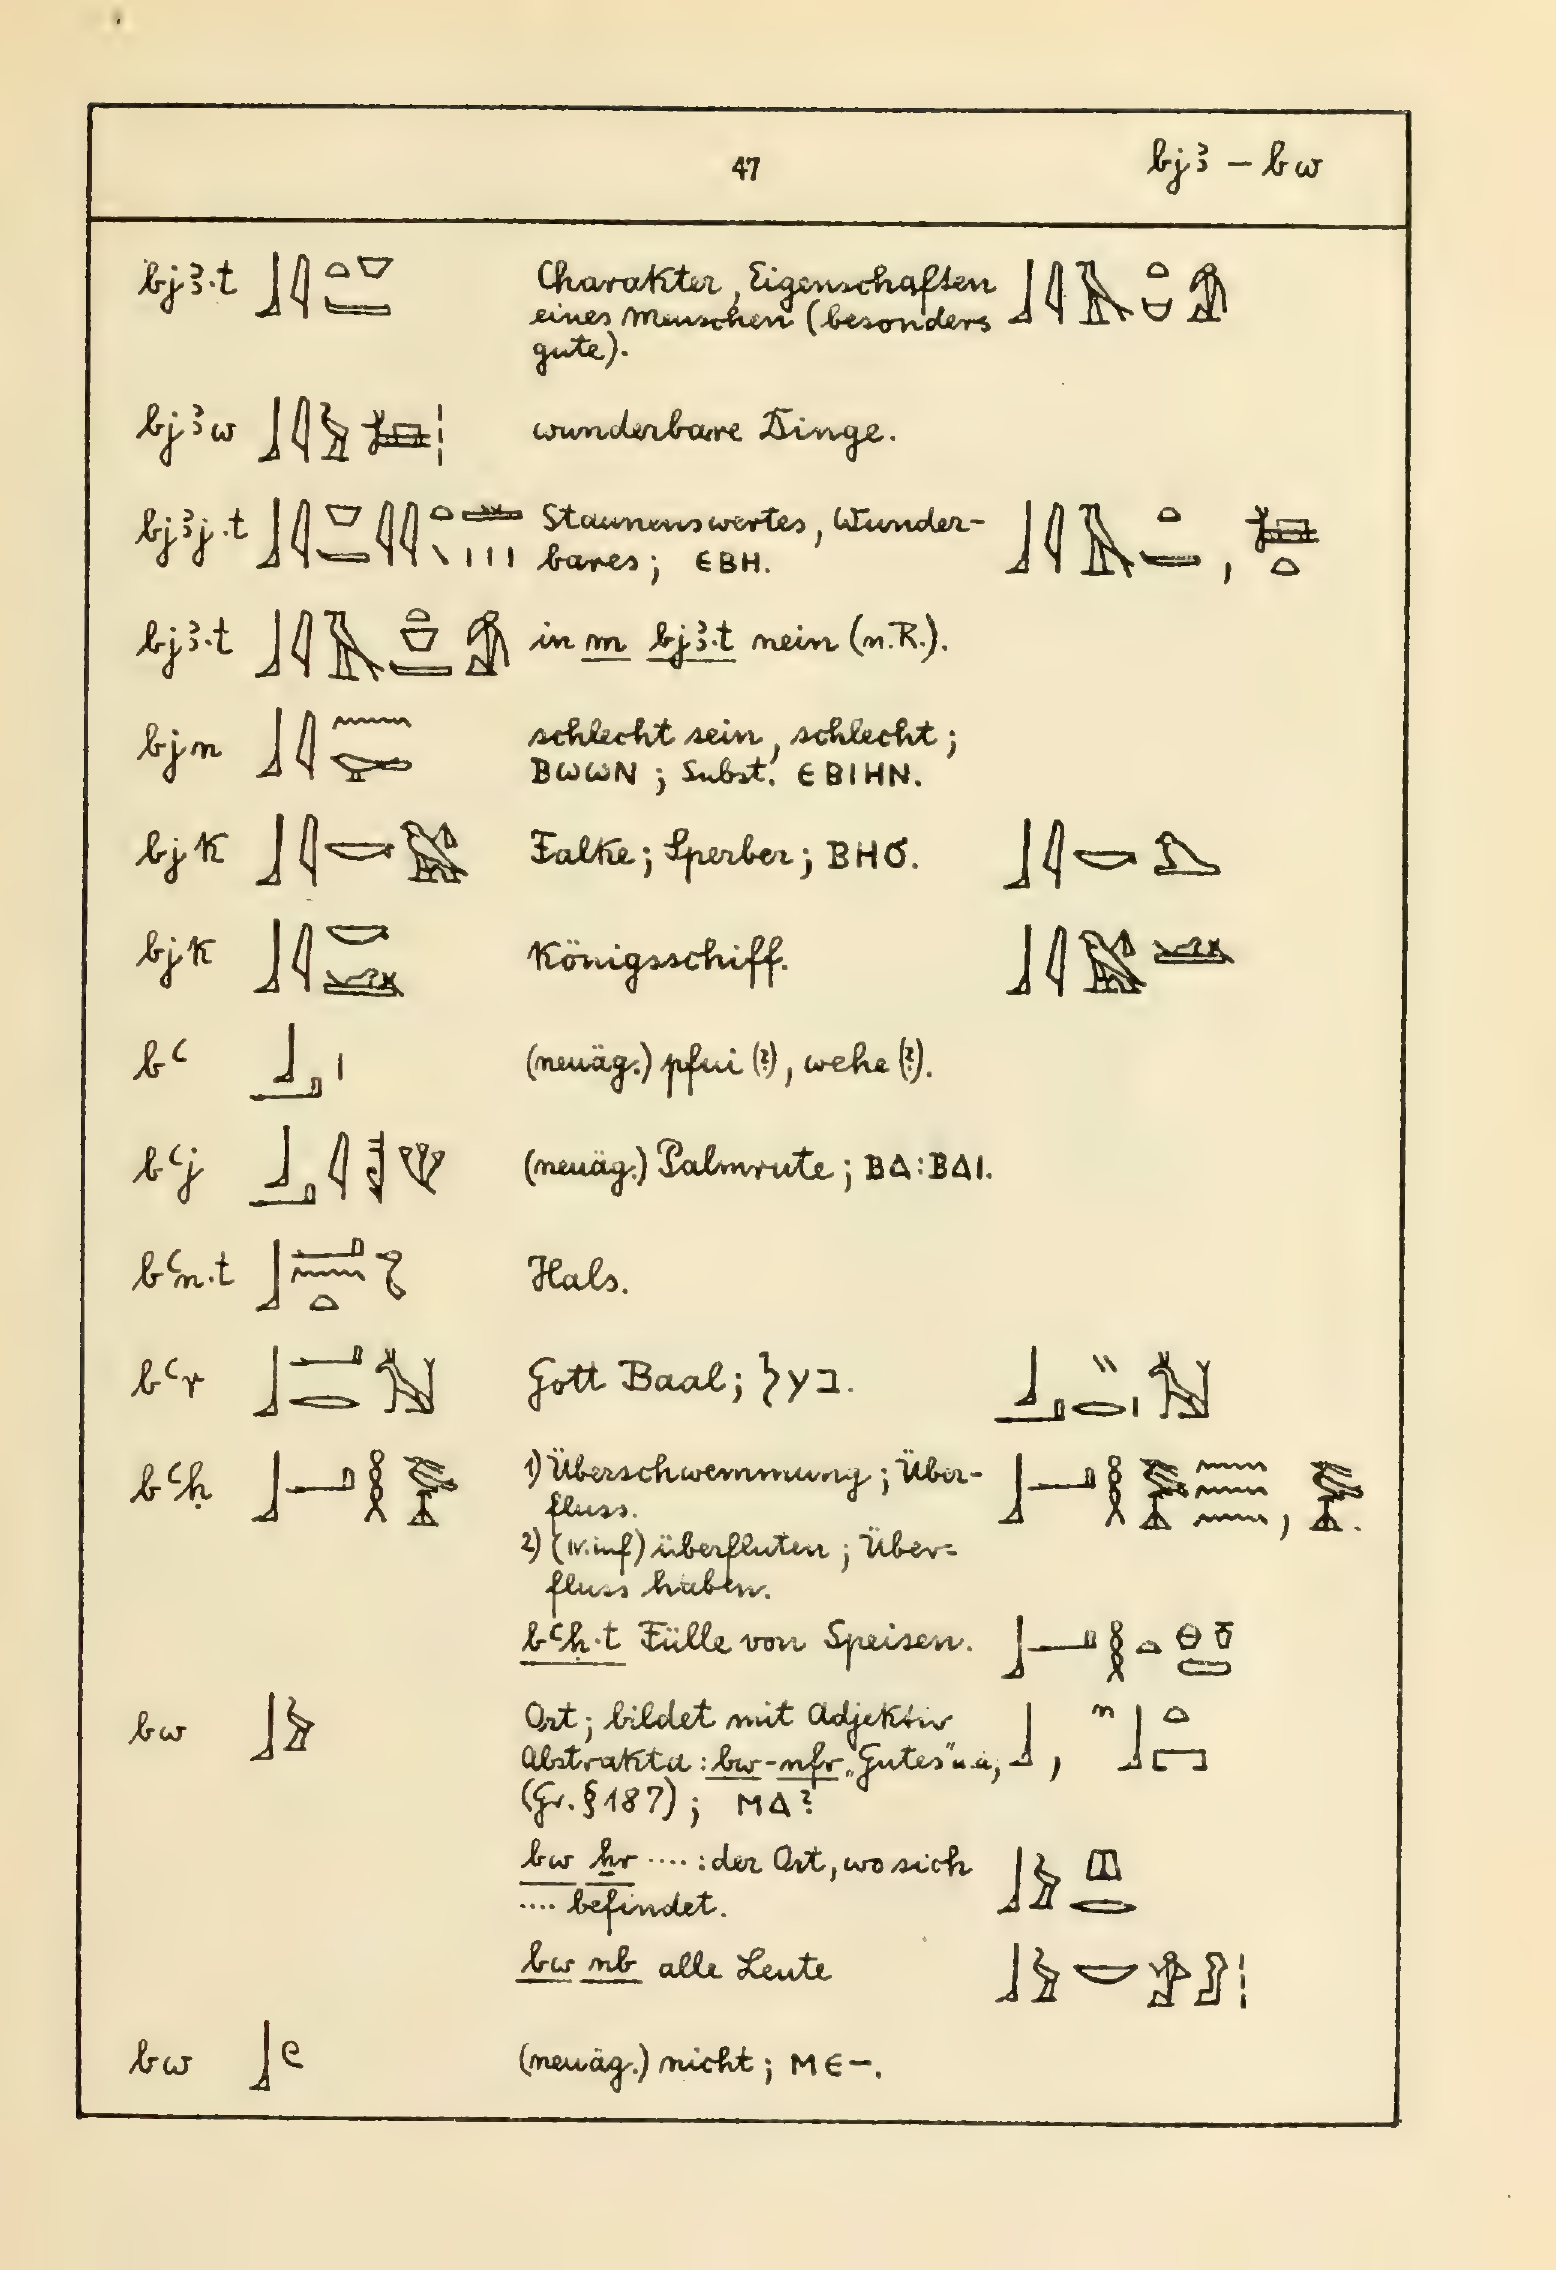 47 bjꜣ – bw
bjꜣ·t Charakter, Eigenschaften
eines Menschen (besonders
gute).
bjꜣw wunderbare Dinge.
bjꜣj·t Staunenswertes, Wunder-
bares; ⲉⲃⲏ.
bjꜣ·t in m bjꜣ·t nein (n.R.).
bjn schlecht sein, schlecht;
ⲃⲱⲱⲛ; Subst. ⲉⲃⲓⲏⲛ.
bjk Falke; Sperber; ⲃⲏϭ.
bjk Königsschiff.
bꜥ (neuäg.) pfui (?), wehe (?).
bꜥj (neuäg.) Palmrute; ⲃⲁ:ⲃⲁⲓ.
bꜥn·t Hals.
bꜥr Gott Baal; בעל.
bꜥḥ 1) Überschwemmung; Über-
fluss.
2) (IV.inf) überfluten; Über-
fluss haben.
bꜥḥ·t Fülle von Speisen.
bw Ort; bildet mit Adjektiv
Abstrakta: bw-nfr „Gutes" u.a, n
(Gr. § 187); ⲙⲁ?
bw ẖr ····: der Ort, wo sich
···· befindet.
bw nb alle Leute
bw (neuäg.) nicht; ⲙⲉ–.